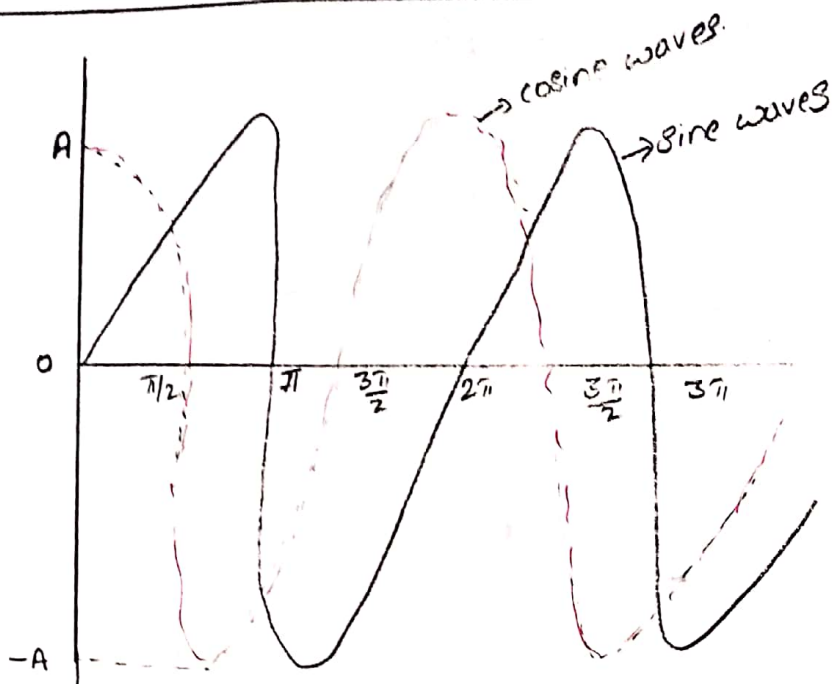 → cosine waves.
→ sine waves
A
0
π/2
π
3π/2
2π
3π/2
3π
-A